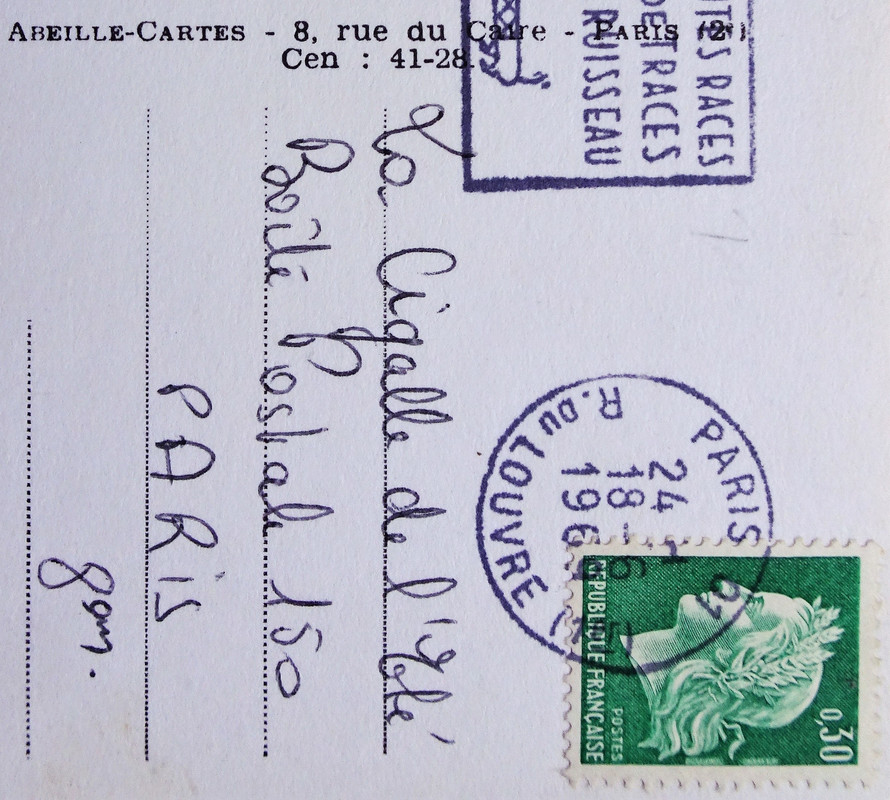 ABEILLE-CARTES - 8, rue du Caire - PARIS (2e)
Cen : 41-28
ITES RACES
DE TRACES
RUISSEAU
PARIS 01
24 -
18 - 6
196
R. DU LOUVRE (1er)
0,30
POSTES
REPUBLIQUE FRANÇAISE
La Cigalle de l'Eté
Boîte Postale 150
PARIS
8em.